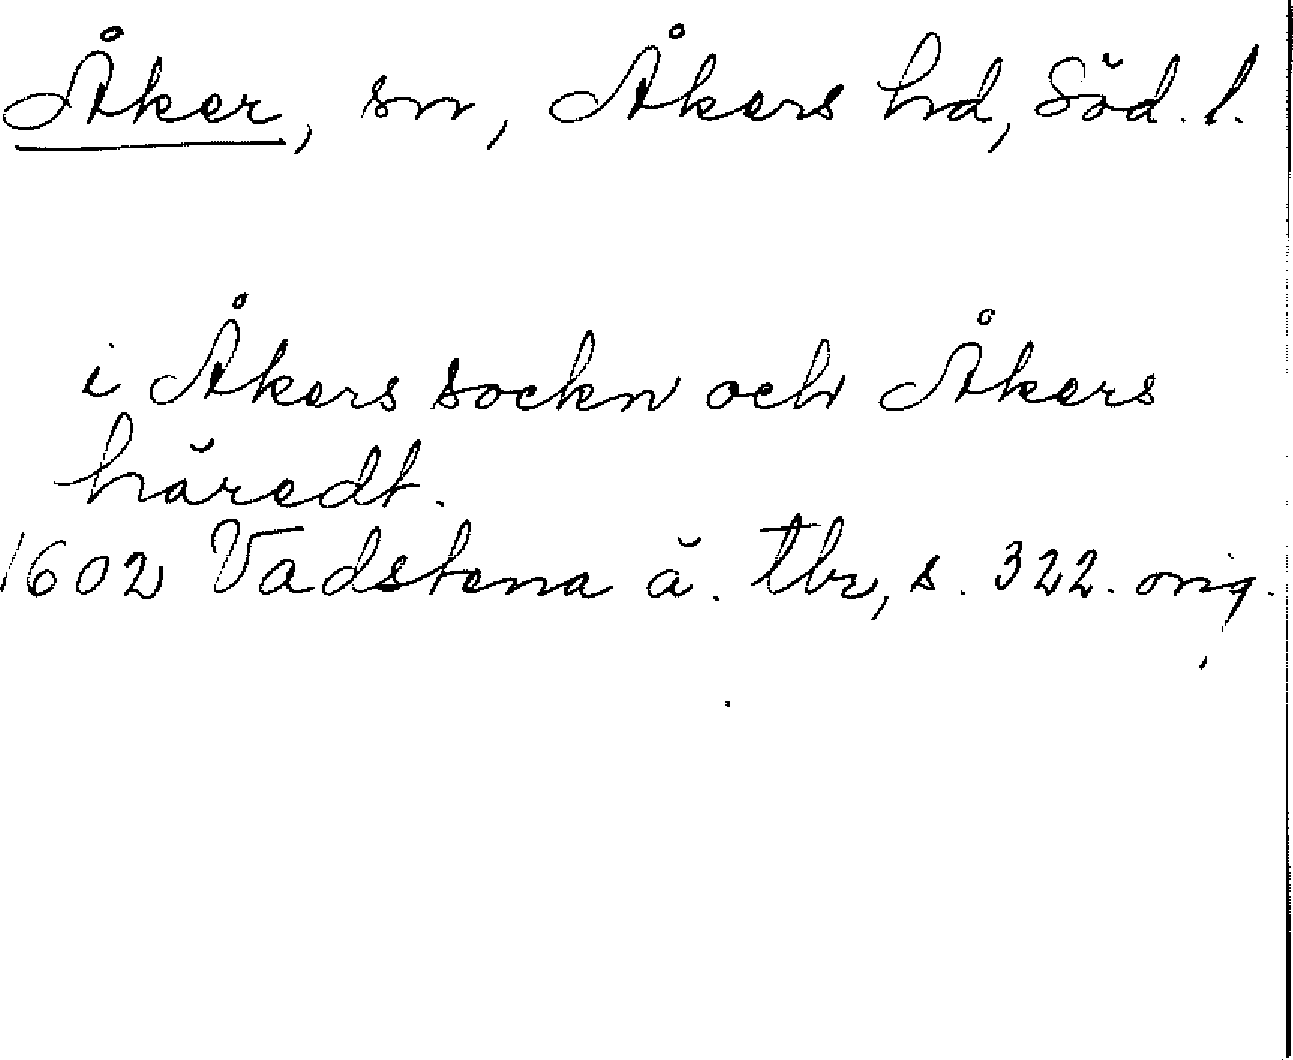 Åker, sn, Åkers hd, Söd. l.
i Åkers sockn och Åkers
häredt.
1602 Vadstena ä. tbr, s. 322. orig.